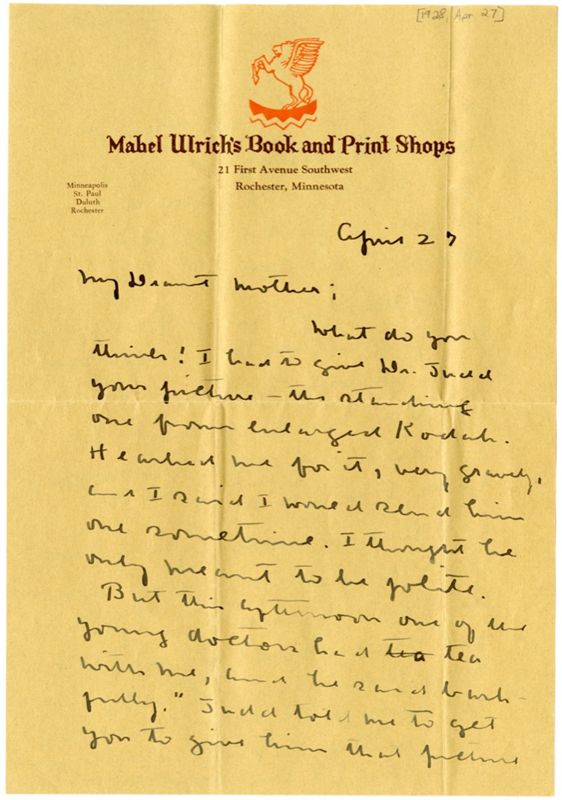 [1928, Apr 27]
Mabel Ulrich's Book and Print Shops
21 First Avenue Southwest
Rochester, Minnesota
Minneapolis
St. Paul
Duluth
Rochester
April 27
My Dearest Mother;
What do you
think! I had to give Dr. Judd
your picture – the standing
one from enlarged Kodak.
He asked me for it, very gravely,
and I said I would send him
one sometime. I thought he
only meant to be polite.
But this afternoon one of the
young doctors had tea tea
with me, and he said bash-
fully. "Judd told me to get
you to give him that picture